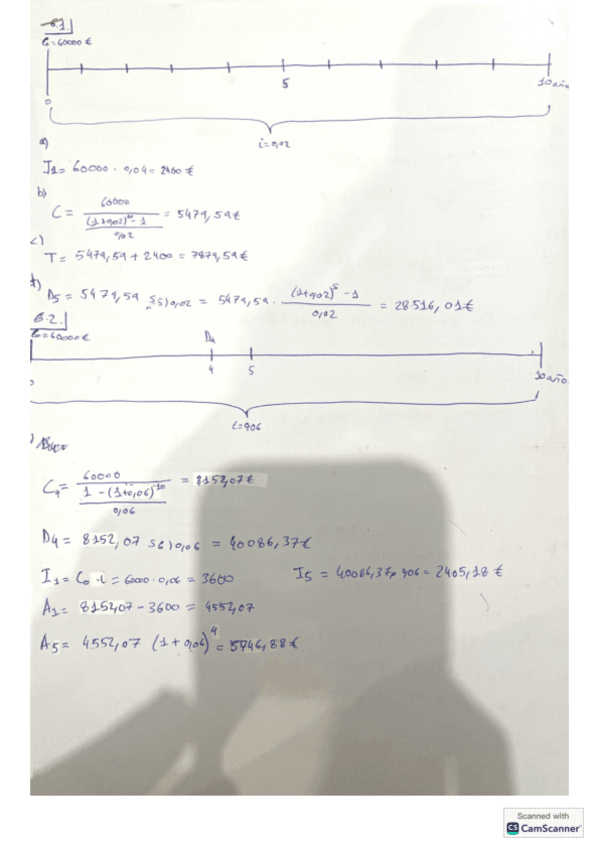 6.1.
C₀=60000 €
0 5 10 años
i=0,02
a)
I₁= 60000 · 0,04 = 2400 €
b)
C = 60000 / (((1+0,02)¹⁰ - 1) / 0,02) = 5479,59 €
c)
T = 5479,59 + 2400 = 7879,59 €
d)
D₅ = 5479,59 S₅⌉0,02 = 5479,59 · ((1+0,02)⁵ - 1) / 0,02 = 28516,01 €
6.2.
C₀=60000 €
D₄
4 5 10 años
i=0,06
C₄ = 60000 / ((1 - (1+0,06)⁻¹⁰) / 0,06) = 8152,07 €
D₄ = 8152,07 S6⌉0,06 = 40086,37 €
I₁ = C₀ · i = 6000 · 0,06 = 3600 I₅ = 40086,37 · 0,06 = 2405,18 €
A₁ = 8152,07 - 3600 = 4552,07
A₅ = 4552,07 (1 + 0,06)⁴ = 5746,88 €
Scanned with
CS CamScanner